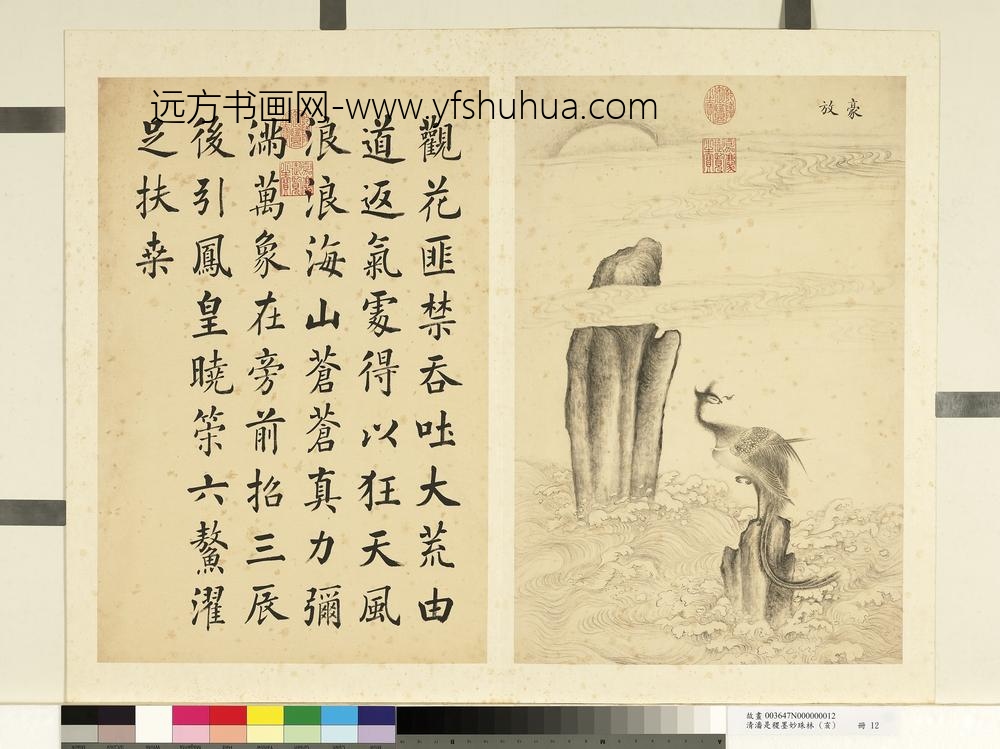 远方书画网-www.yfshuhua.com
豪放
觀花匪禁吞吐大荒由
道返氣處得以狂天風
浪浪海山蒼蒼真力彌
滿萬象在旁前招三辰
後引鳳皇曉策六鰲濯
足扶桒
故畫 003647N000000012
清潘是稷墨妙珠林（亥） 冊 12